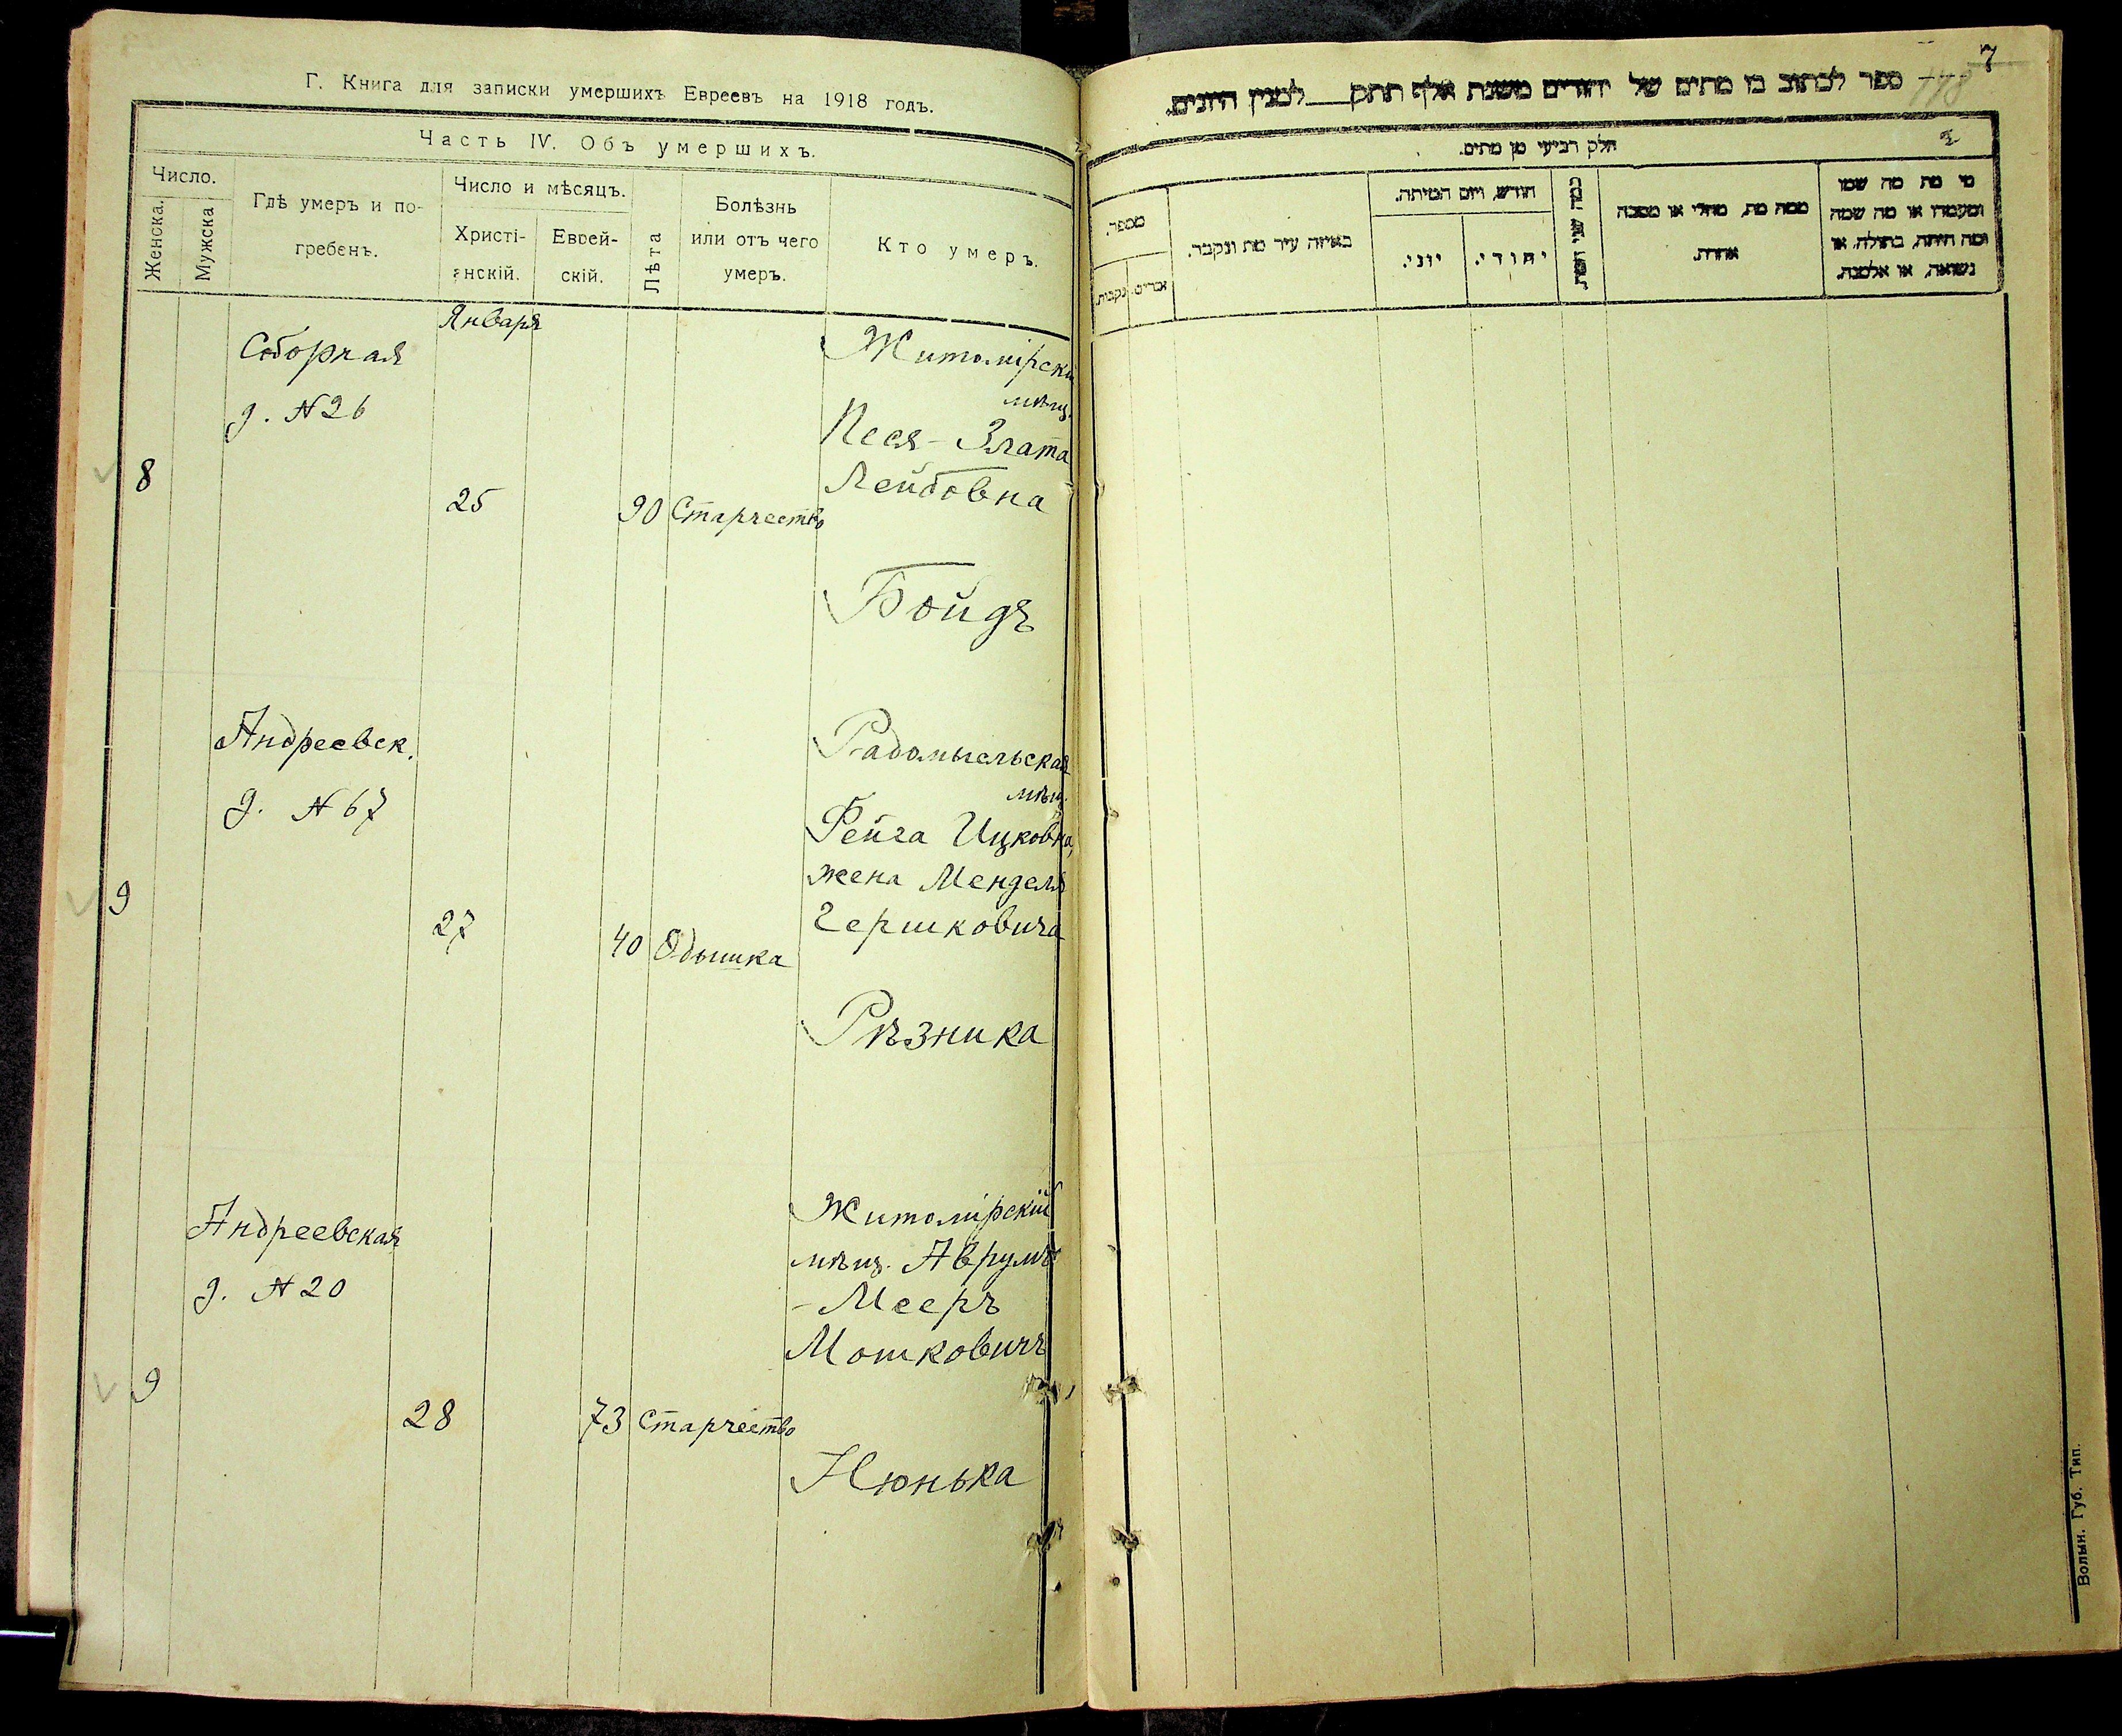 Г. Книга для записки умершихъ Евреевъ на 1918 годъ.
Часть IV. Объ умершихъ.
Число.
Женска.
Мужска
Гдѣ умеръ и по-
гребенъ.
Число и мѣсяцъ.
Христі-
анскій.
Еврей-
скій.
Лѣта
Болѣзнь
или отъ чего
умеръ.
Кто умеръ.
Января
Соборная
д. №26
8
25
90
Старчество
Житомірск
мѣщ.
Песя-Злата
Лейбовна
Бойдъ
Андреевск.
д. №67
9
27
40
Одышка
Радомысльская
мѣщ.
Фейга Ицковна,
жена Менделя
Гершковича
Рѣзника
Андреевская
д. №20
9
28
73
Старчество
Житомірскій
мѣщ. Аврумъ
-Мееръ
Мошковичъ
Нюнька
7
118
ספר לכתוב בו מתים של יהודים משנת אלף תתק למנין היונים.
2
חלק רביעי מן מתים.
מספר.
זכרים.
נקבות.
באיזה עיר מת ונקבר.
חודש, ויום המיתה.
יוני.
יהודי.
כמה שני המת.
ממה מת, מחלי או מסבה
אחרת.
מי מת מה שמו
ומעמדו או מה שמה
ומה היתה, בתולה, או
נשואה, או אלמנה.
Волын. Губ. Тип.